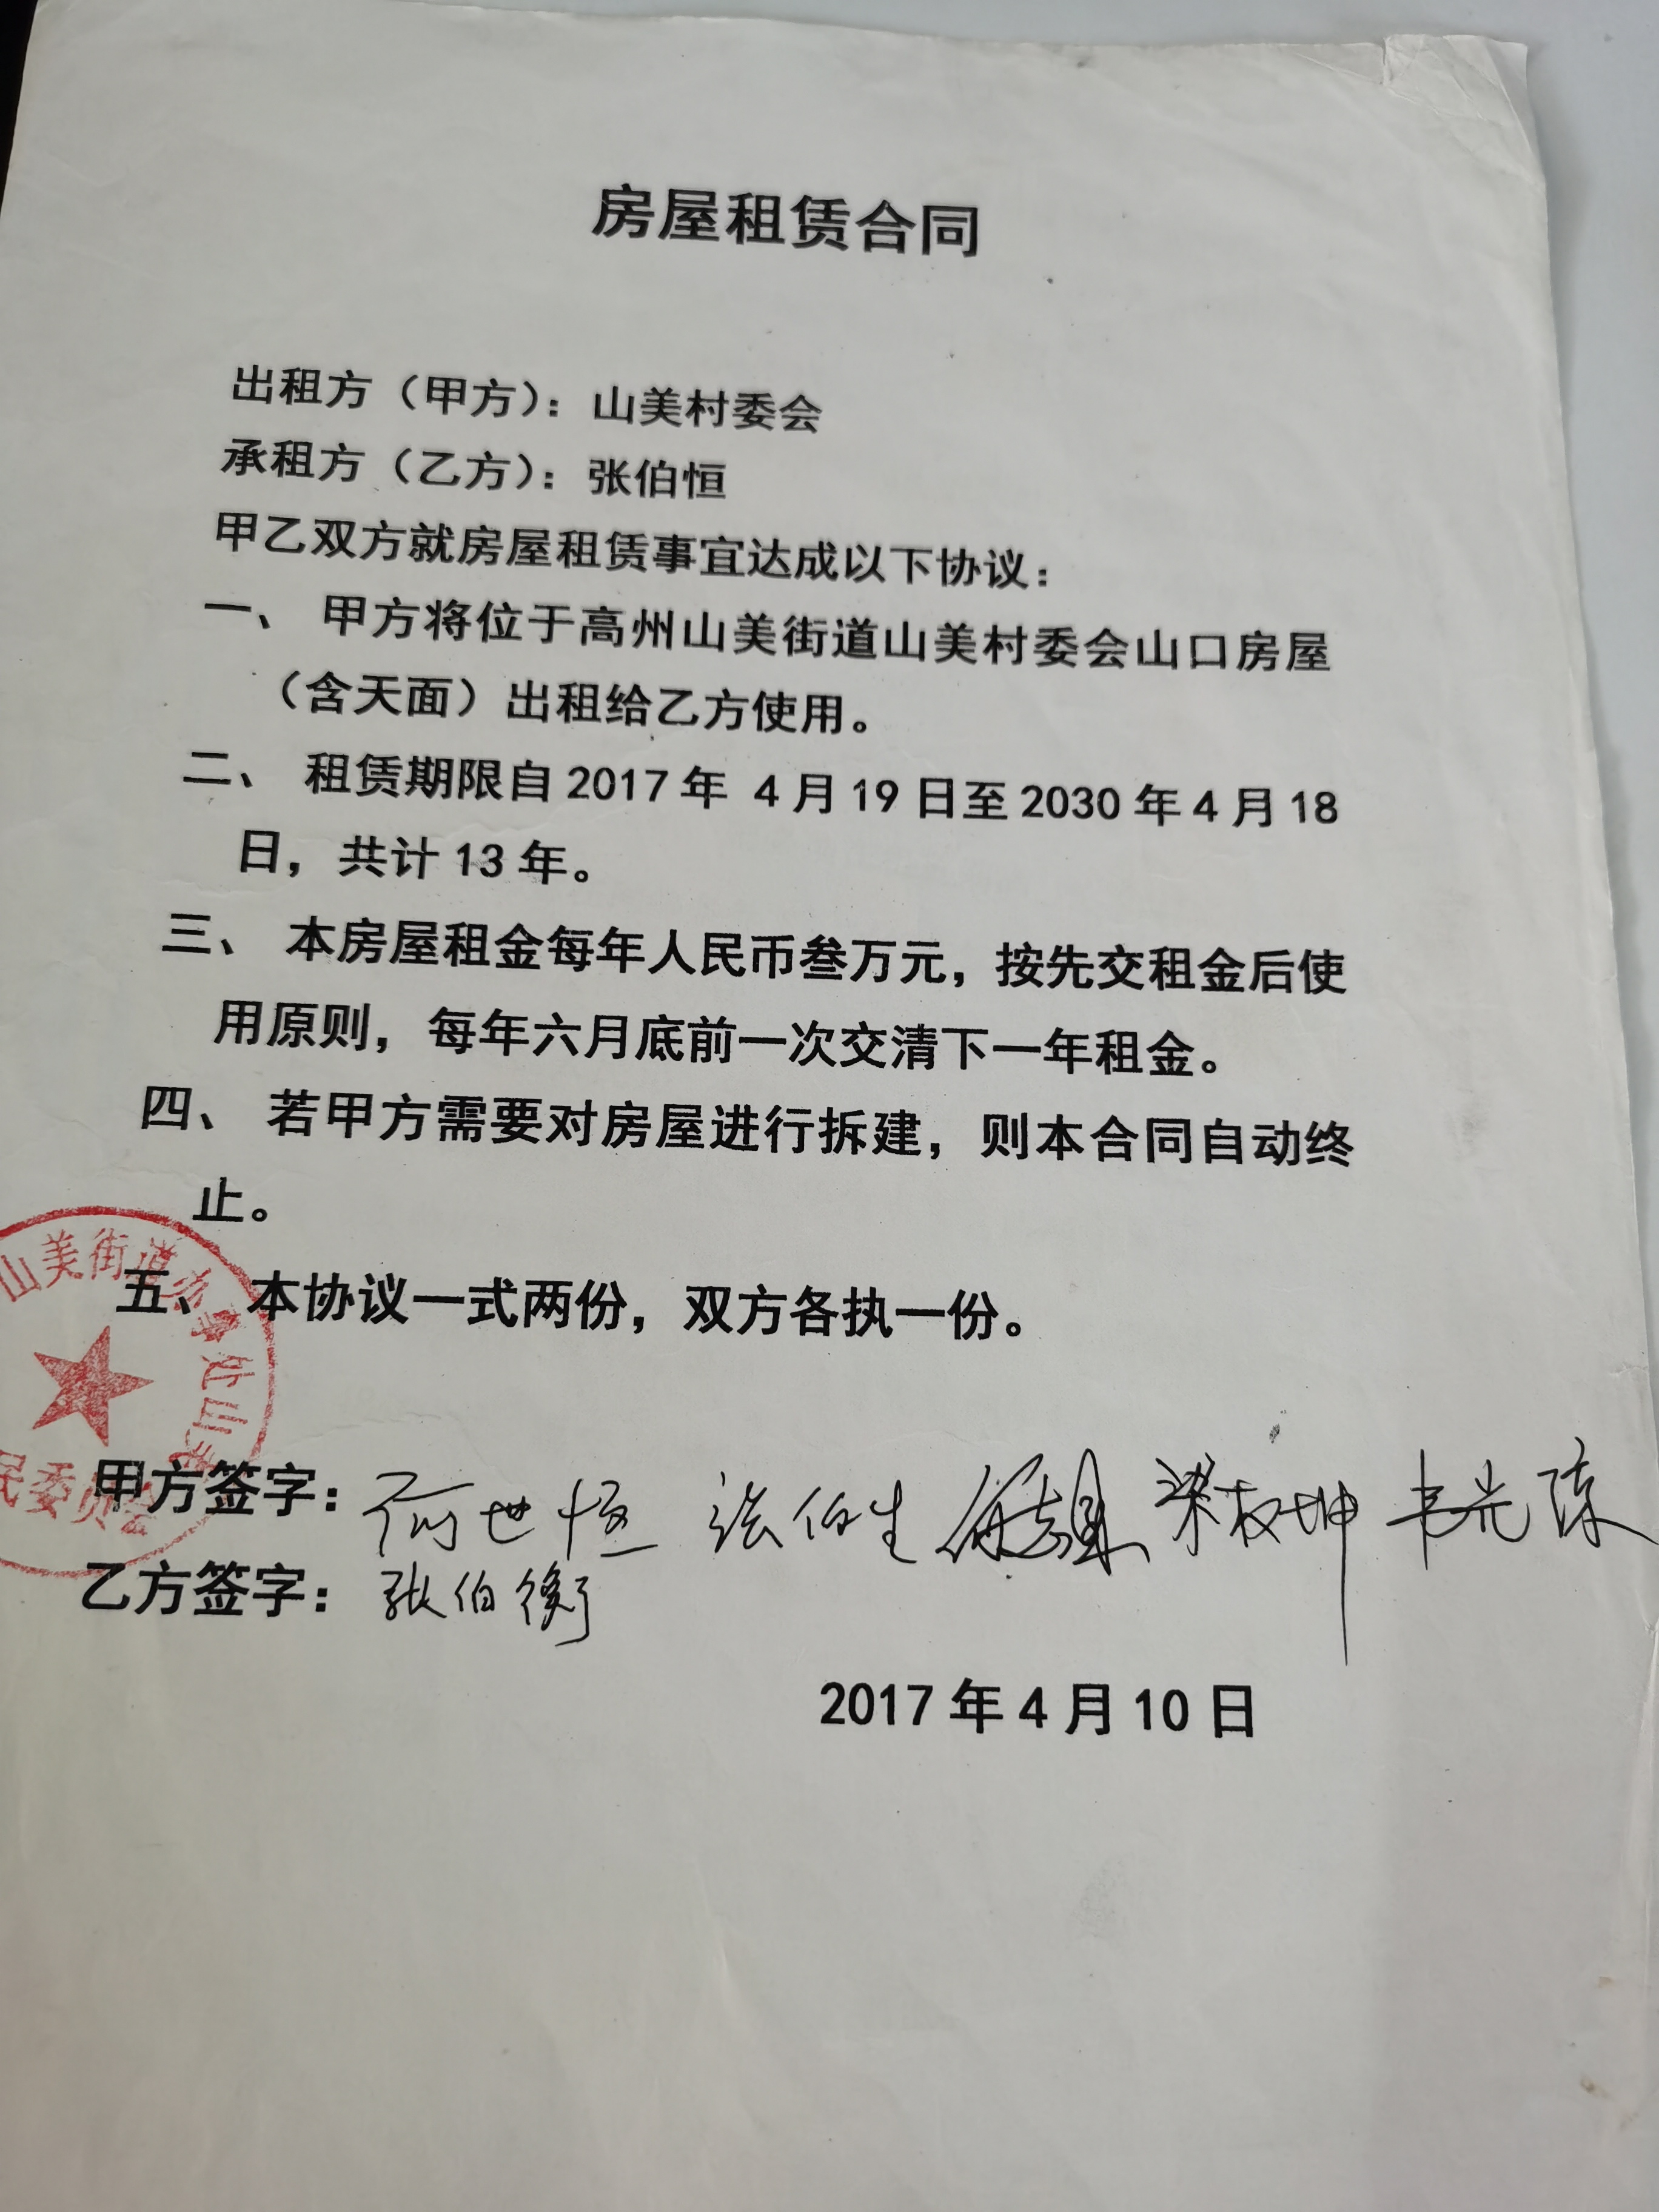 房屋租赁合同
出租方（甲方）：山美村委会
承租方（乙方）：张伯恒
甲乙双方就房屋租赁事宜达成以下协议：
一、 甲方将位于高州山美街道山美村委会山口房屋
（含天面）出租给乙方使用。
二、 租赁期限自2017年 4月19日至2030年4月18
日，共计13年。
三、 本房屋租金每年人民币叁万元，按先交租金后使
用原则，每年六月底前一次交清下一年租金。
四、 若甲方需要对房屋进行拆建，则本合同自动终
止。
五、 本协议一式两份，双方各执一份。
山美街道办事处山美
民委员会
甲方签字： 世恒 张伯生 梁权坤
乙方签字：张伯衡
2017年4月10日